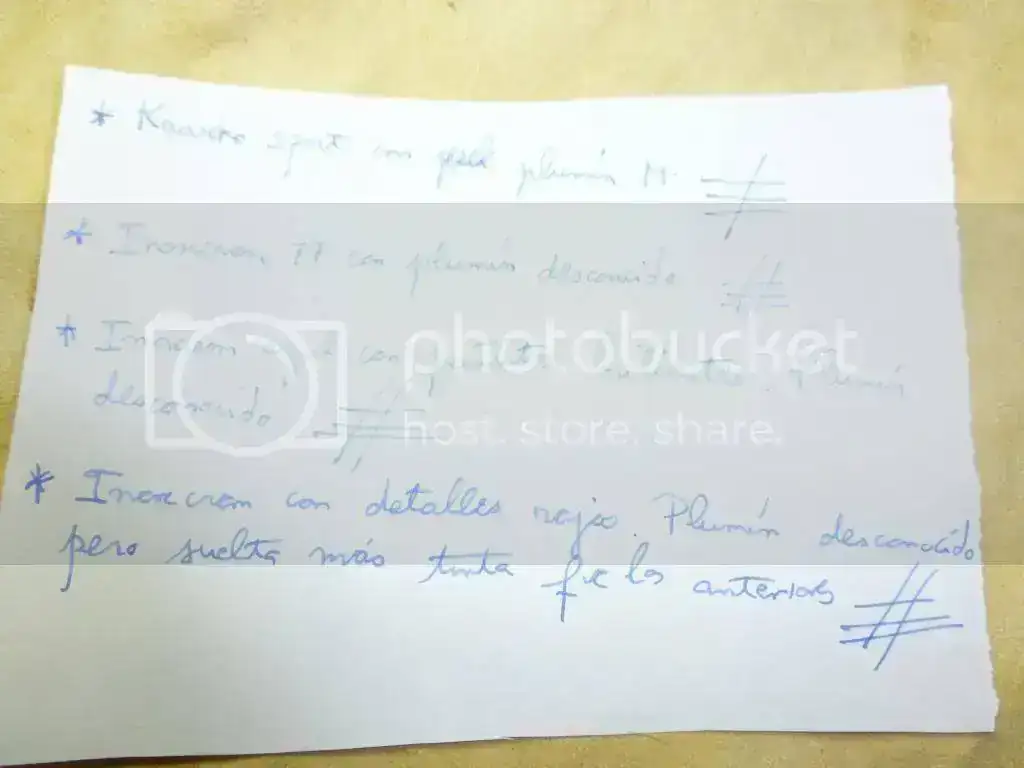 * Kaweco sport con plumín M.
* Inoxcrom TT con plumín desconocido
* Inoxcrom con Plumín
desconocido
* Inoxcrom con detalles rojos. Plumín desconocido
pero suelta más tinta que los anteriores
photobucket
host. store. share.